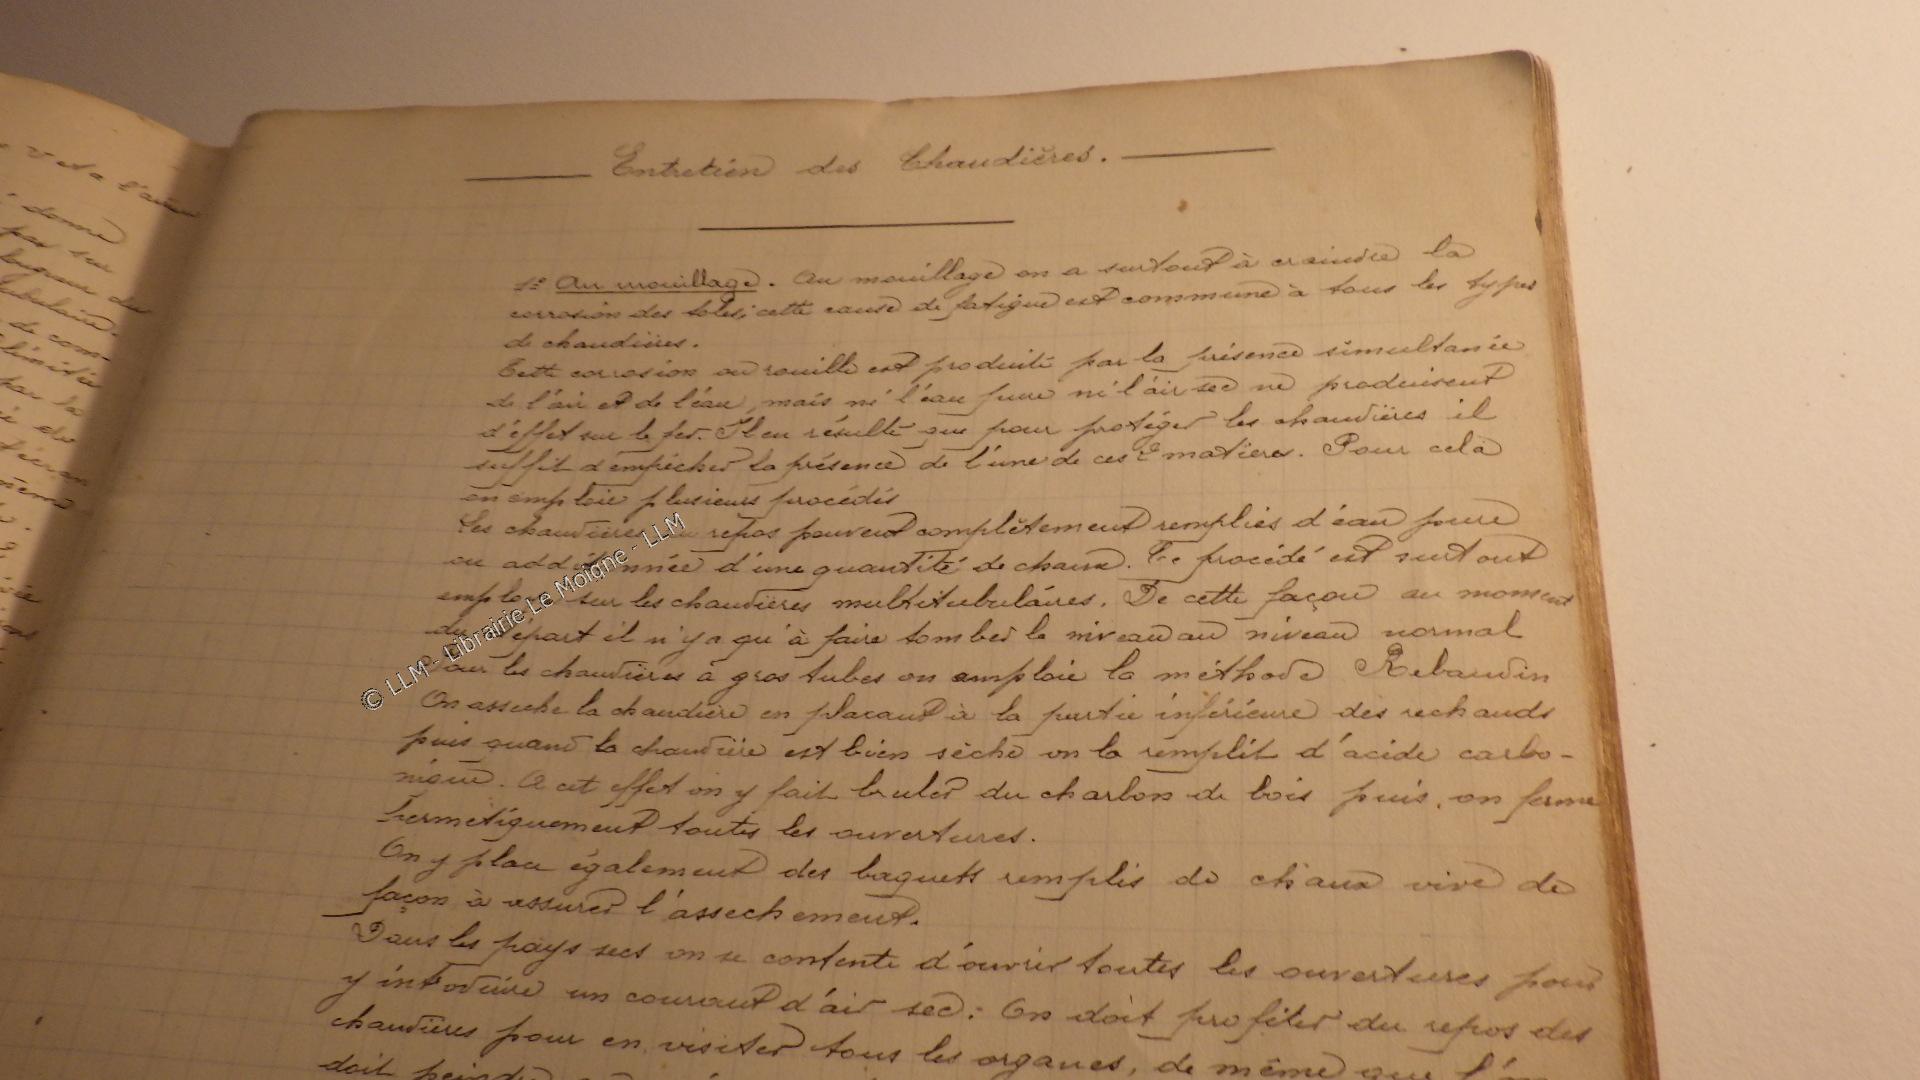 Entretien des Chaudières.
1º Au mouillage. Au mouillage on a surtout à craindre la
corrosion des toles; cette cause de fatigue est commune à tous les types
de chaudières.
Cette corrosion ou rouille est produite par la présence simultanée
de l'air et de l'eau, mais ni l'eau pure ni l'air sec ne produisent
d'effet sur le fer. Il en résulte que pour protéger les chaudières il
suffit d'empécher la présence de l'une de ces 2 matières. Pour cela
on emploie plusieurs procédés
Les chaudières au repos peuvent complètement remplies d'eau pure
ou additionnée d'une quantité de chaux. Ce procédé est surtout
employé sur les chaudières multitubulaires. De cette façon au moment
du départ il n'y a qu'à faire tomber le niveau au niveau normal
Pour les chaudières à gros tubes on emploie la méthode Rebaudin
On asseche la chaudière en placant à la partie inférieure des rechauds
puis quand la chaudière est bien sèche on la remplit d'acide carbo-
nique. A cet effet on y fait bruler du charbon de bois puis, on ferme
hermétiquement toutes les ouvertures.
On y place également des baquets remplis de chaux vive de
façon à assurer l'assechement.
Dans les pays secs on se contente d'ouvrir toutes les ouvertures pour
y introduire un courant d'air sec: On doit profiter du repos des
chaudières pour en visiter tous les organes, de même que
doit peindre
© LLM - Librairie Le Moigne - LLM